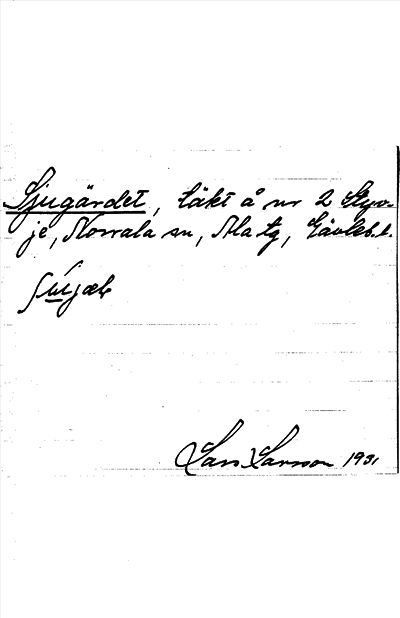 Sjugärdet, täkt å nr 2 Styv-
je, Norrala sn, Ala tg, Gävleb. l.
Lars Larsson 1931